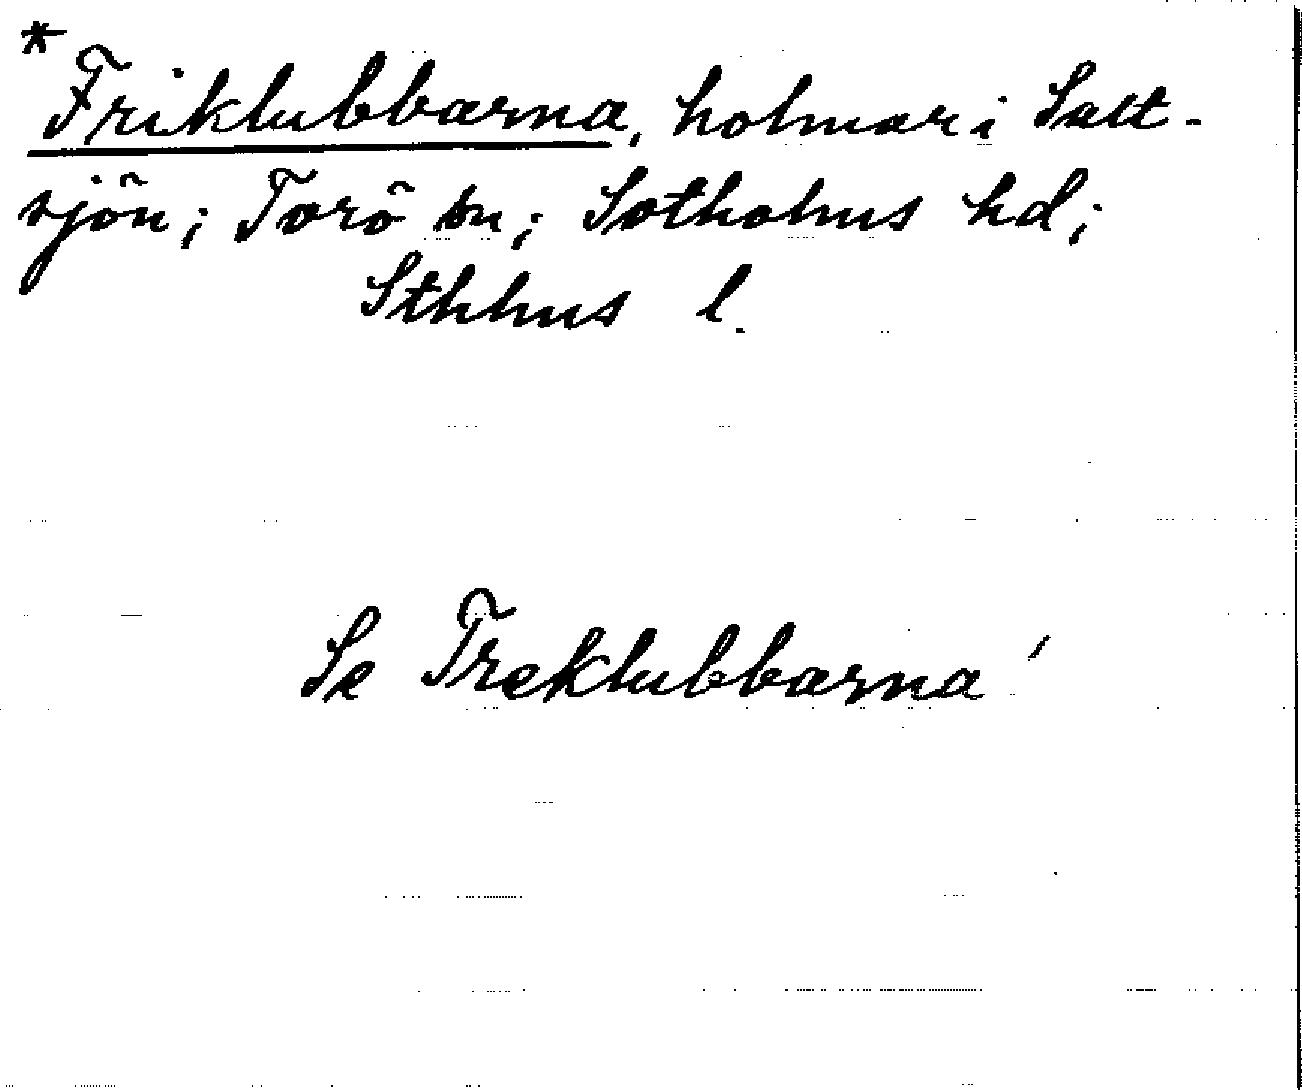 *
Friklubbarna, holmar i Salt-
sjön; Torö sn; Sotholms hd;
Sthlms l.
Se Treklubbarna